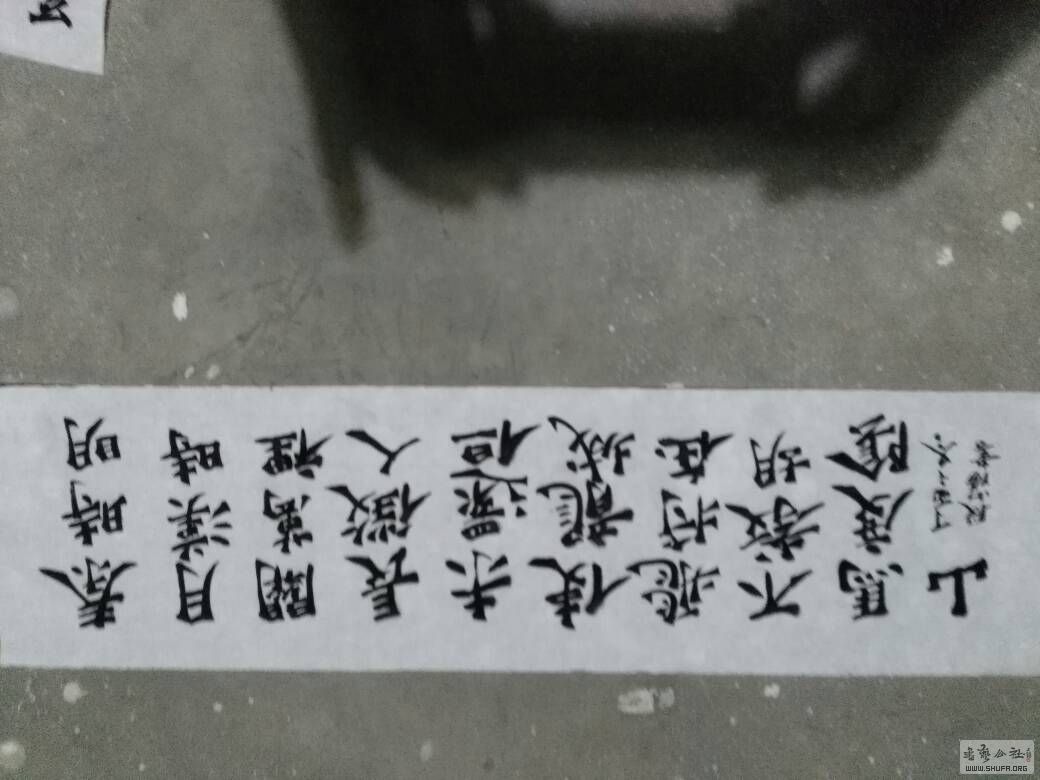 秦時明
月漢時
關萬裡
長徵人
未還但
使龍城
飛將在
不教胡
馬度陰
山
丁酉之冬
書藝公社
WWW.SHUFA.ORG